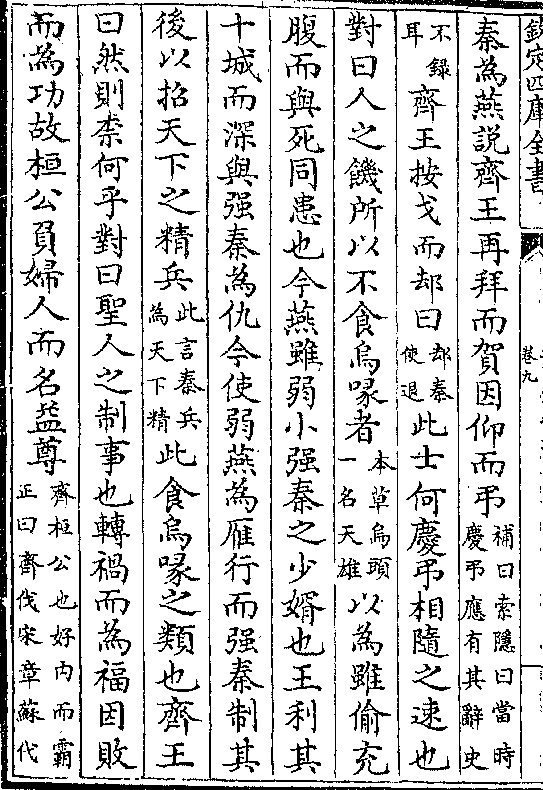 欽定四庫全書
卷九
秦為燕說齊王再拜而賀因仰而弔補曰索隱曰當時慶弔應有其辭史
不錄耳齊王按戈而却曰却秦使退此士何慶弔相隨之速也
對曰人之饑所以不食烏喙者本草烏頭一名天雄以為雖偷充
腹而與死同患也今燕雖弱小强秦之少婿也王利其
十城而深與强秦為仇今使弱燕為雁行而强秦制其
後以招天下之精兵此言秦兵為天下精此食烏喙之類也齊王
曰然則柰何乎對曰聖人之制事也轉禍而為福因敗
而為功故桓公負婦人而名益尊齊桓公也好内而霸正曰齊伐宋章蘇代